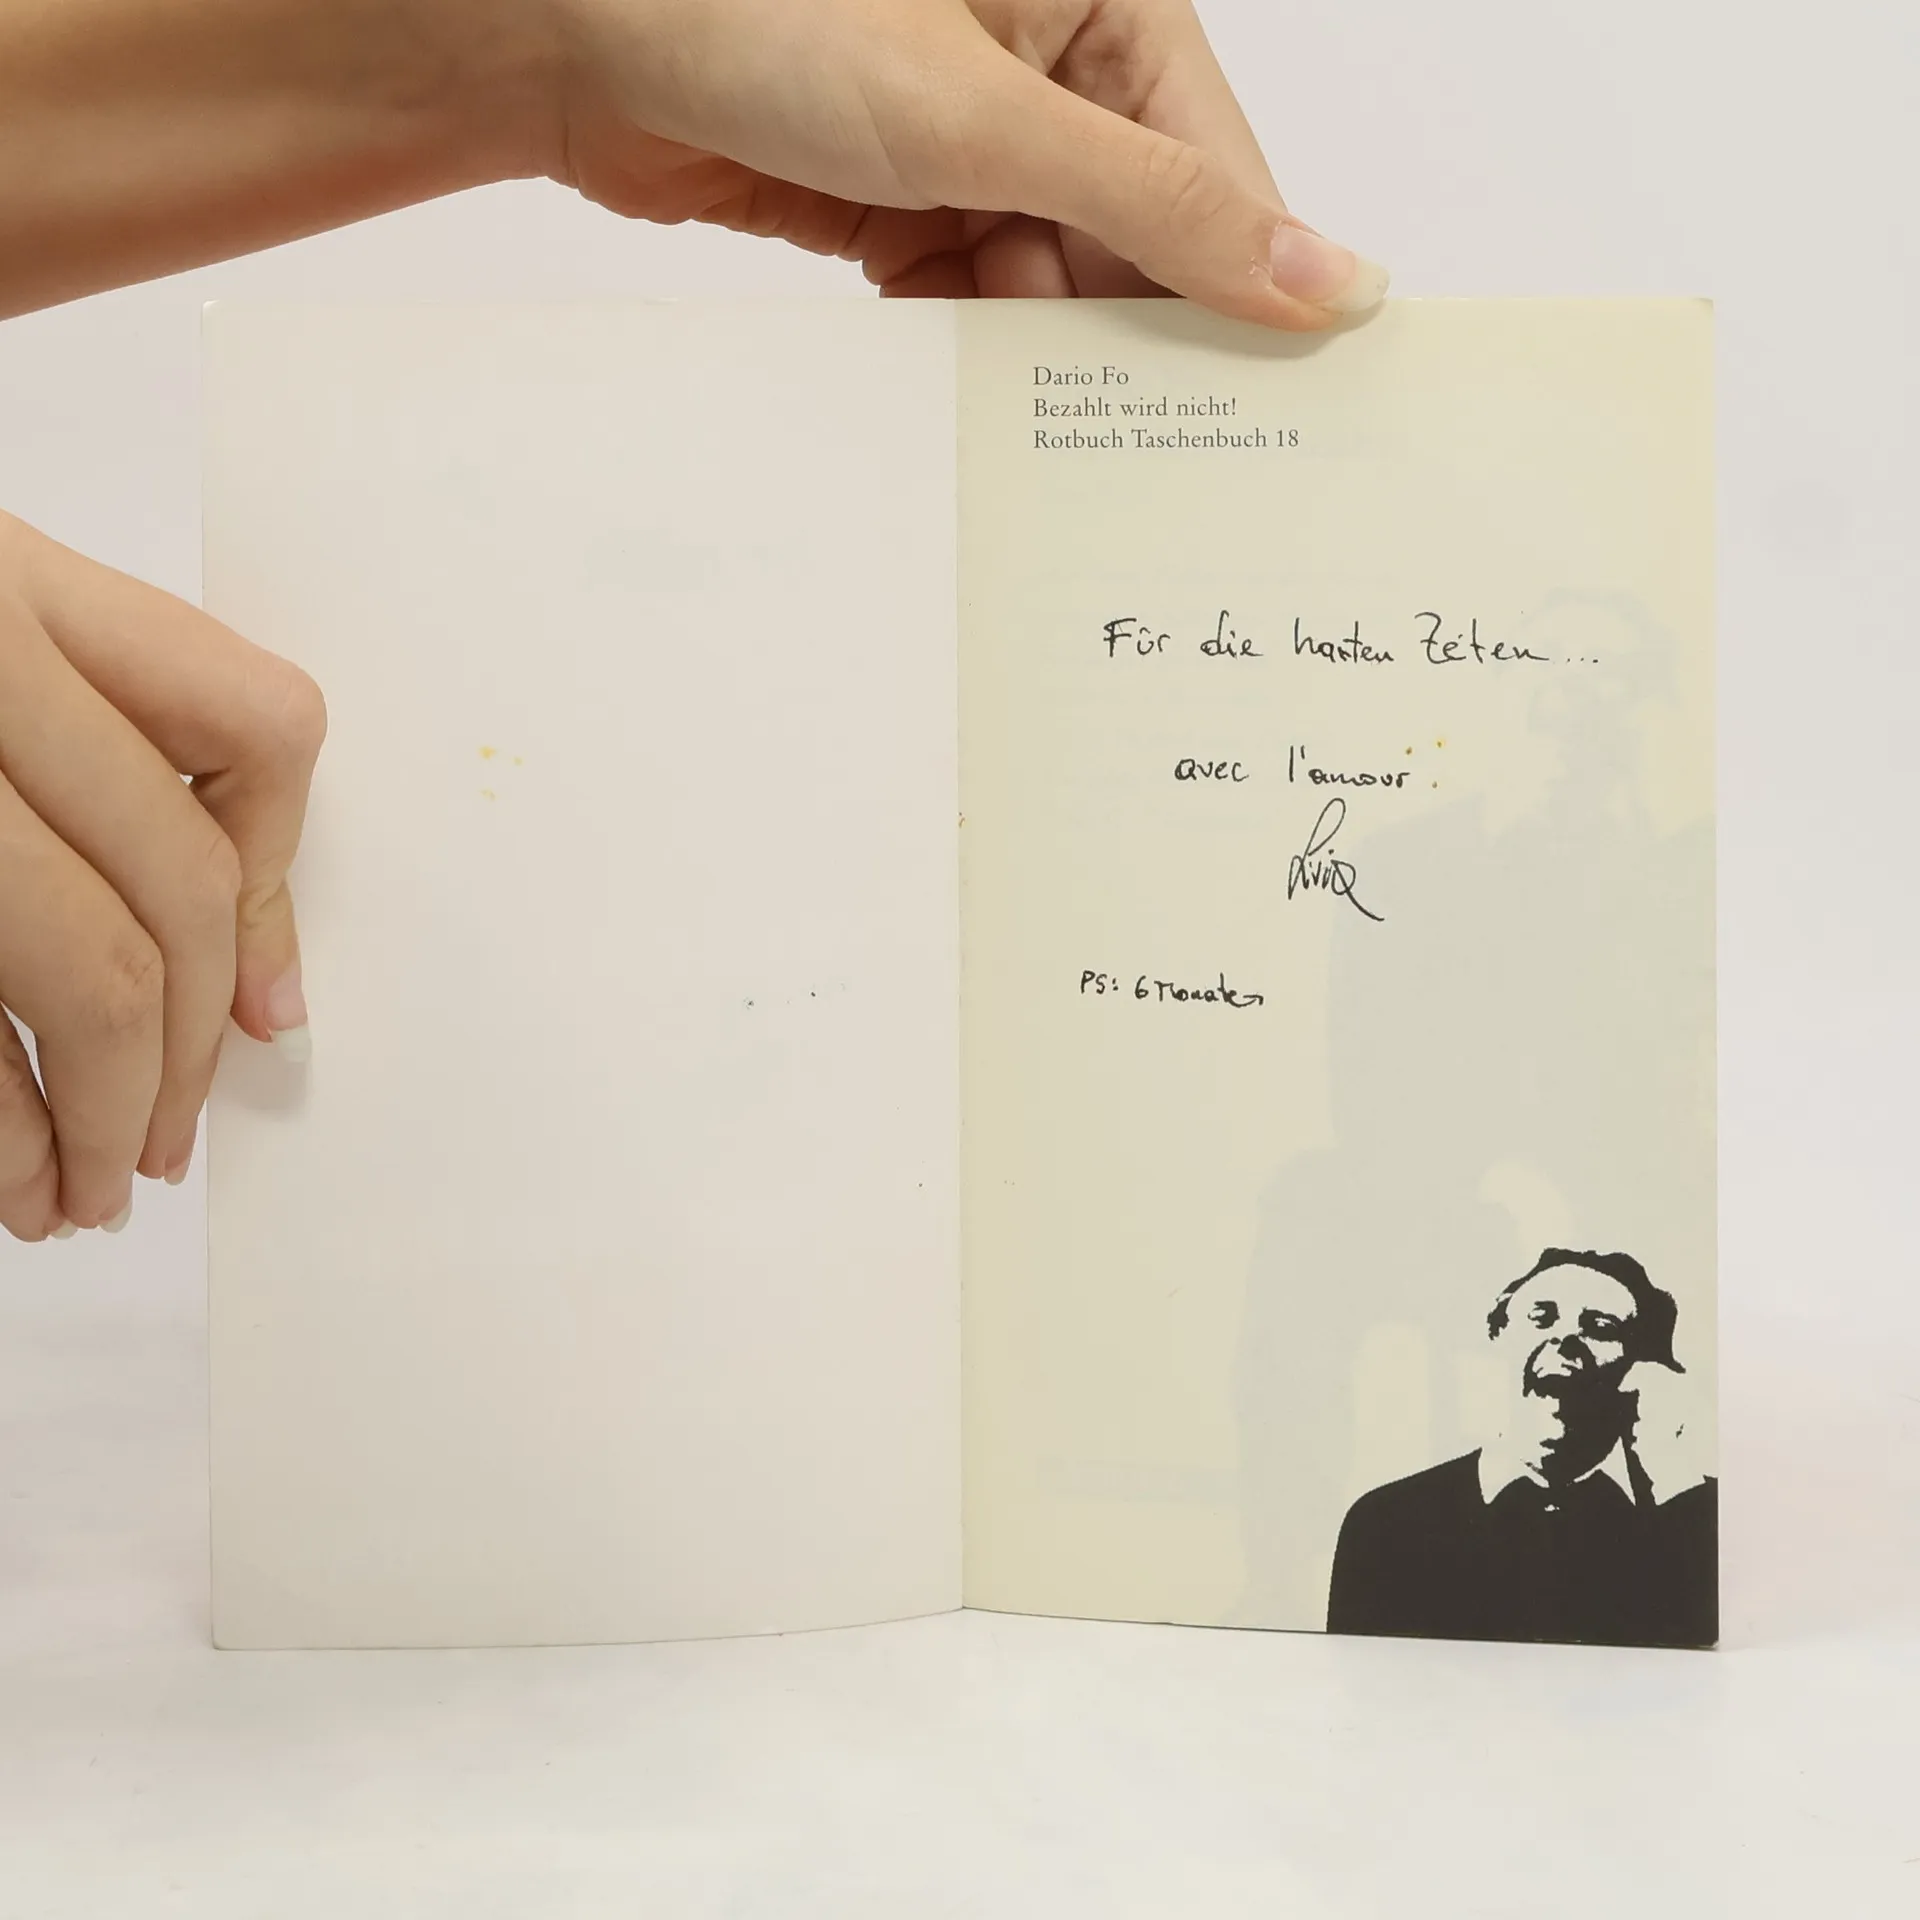 Dario Fo
Bezahlt wird nicht!
Rotbuch Taschenbuch 18
Für die harten Zeiten...
avec l'amour
Livia
PS: 6 Monate